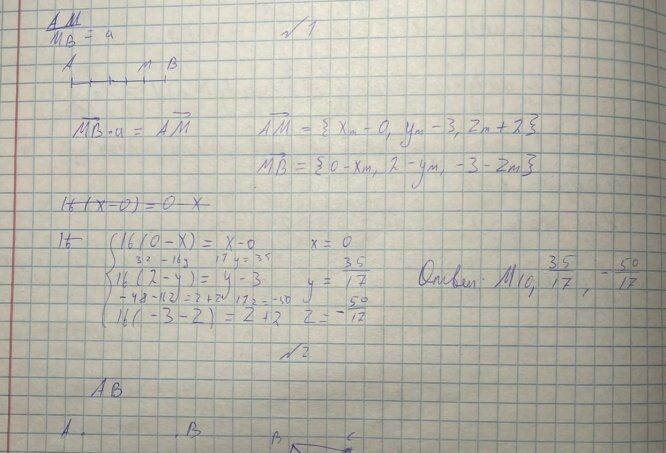 AM/MB = a
√1
A M B
MB·a = AM AM = {xm-0, ym-3, zm+2}
MB = {0-xm, 2-ym, -3-zm}
16(x-0)=0-x
16 16(0-x) = x-0 x = 0
32-16y 17y=35
16(2-y) = y-3 y = 35/17
-48-16z = z+2 17z=-50
16(-3-z) = z+2 z = -50/17
Ответ: M(0, 35/17, -50/17
√2
AB
A. .B
B C